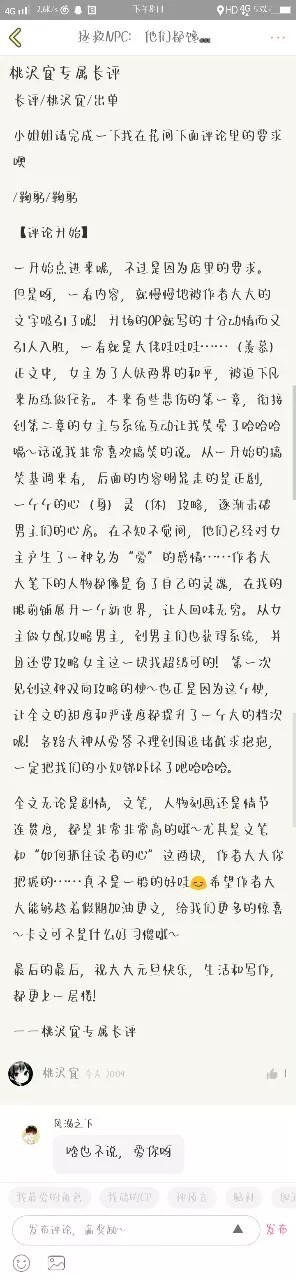 4G 2.6K/s 下午8:11 HD 4G 53%
拯救NPC: 他们都馋...
桃沢宜专属长评
长评/桃沢宜/出单
小姐姐请完成一下我在花间下面评论里的要求
噢
/鞠躬/鞠躬
【评论开始】
一开始点进来呢，不过是因为店里的要求。
但是呀，一看内容，就慢慢地被作者大大的
文字吸引了呢！开场的OP就写的十分动情而又
引人入胜，一看就是大佬哇哇哇……（羡慕）
正文中，女主为了人妖两界的和平，被迫下凡
来历练做任务。本来有些悲伤的第一章，衔接
到第二章的女主与系统互动让我笑晕了哈哈哈
嗝~话说我非常喜欢搞笑的说。从一开始的搞
笑基调来看，后面的内容明显走的是正剧，
一个个的心（身）灵（体）攻略，逐渐击破
男主们的心房。在不知不觉间，他们已经对女
主产生了一种名为“爱”的感情……作者大
大笔下的人物都像是有了自己的灵魂，在我的
眼前铺展开一个新世界，让人回味无穷。从女
主做女配攻略男主，到男主们也获得系统，并
且还要攻略女主这一块我超级可的！第一次
见到这种双向攻略的梗~也正是因为这个梗，
让全文的甜度和严谨度都提升了一个大的档次
呢！各路大神从爱答不理到围追堵截求抱抱，
一定把我们的小知锦吓坏了吧哈哈哈。
全文无论是剧情，文笔，人物刻画还是情节
连贯度，都是非常非常高的哦~尤其是文笔
和“如何抓住读者的心”这两块，作者大大你
把握的……真不是一般的好哇😊希望作者大
大能够趁着假期加油更文，给我们更多的惊喜
~卡文可不是什么好习惯哦~
最后的最后，祝大大元旦快乐，生活和写作，
都更上一层楼！
——桃沢宜专属长评
桃沢宜 今天 20:09 1
风汐之下
啥也不说，爱你呀
我最爱的角色 我站的CP 神预言 脑补
发布评论，赢奖励~ 发布